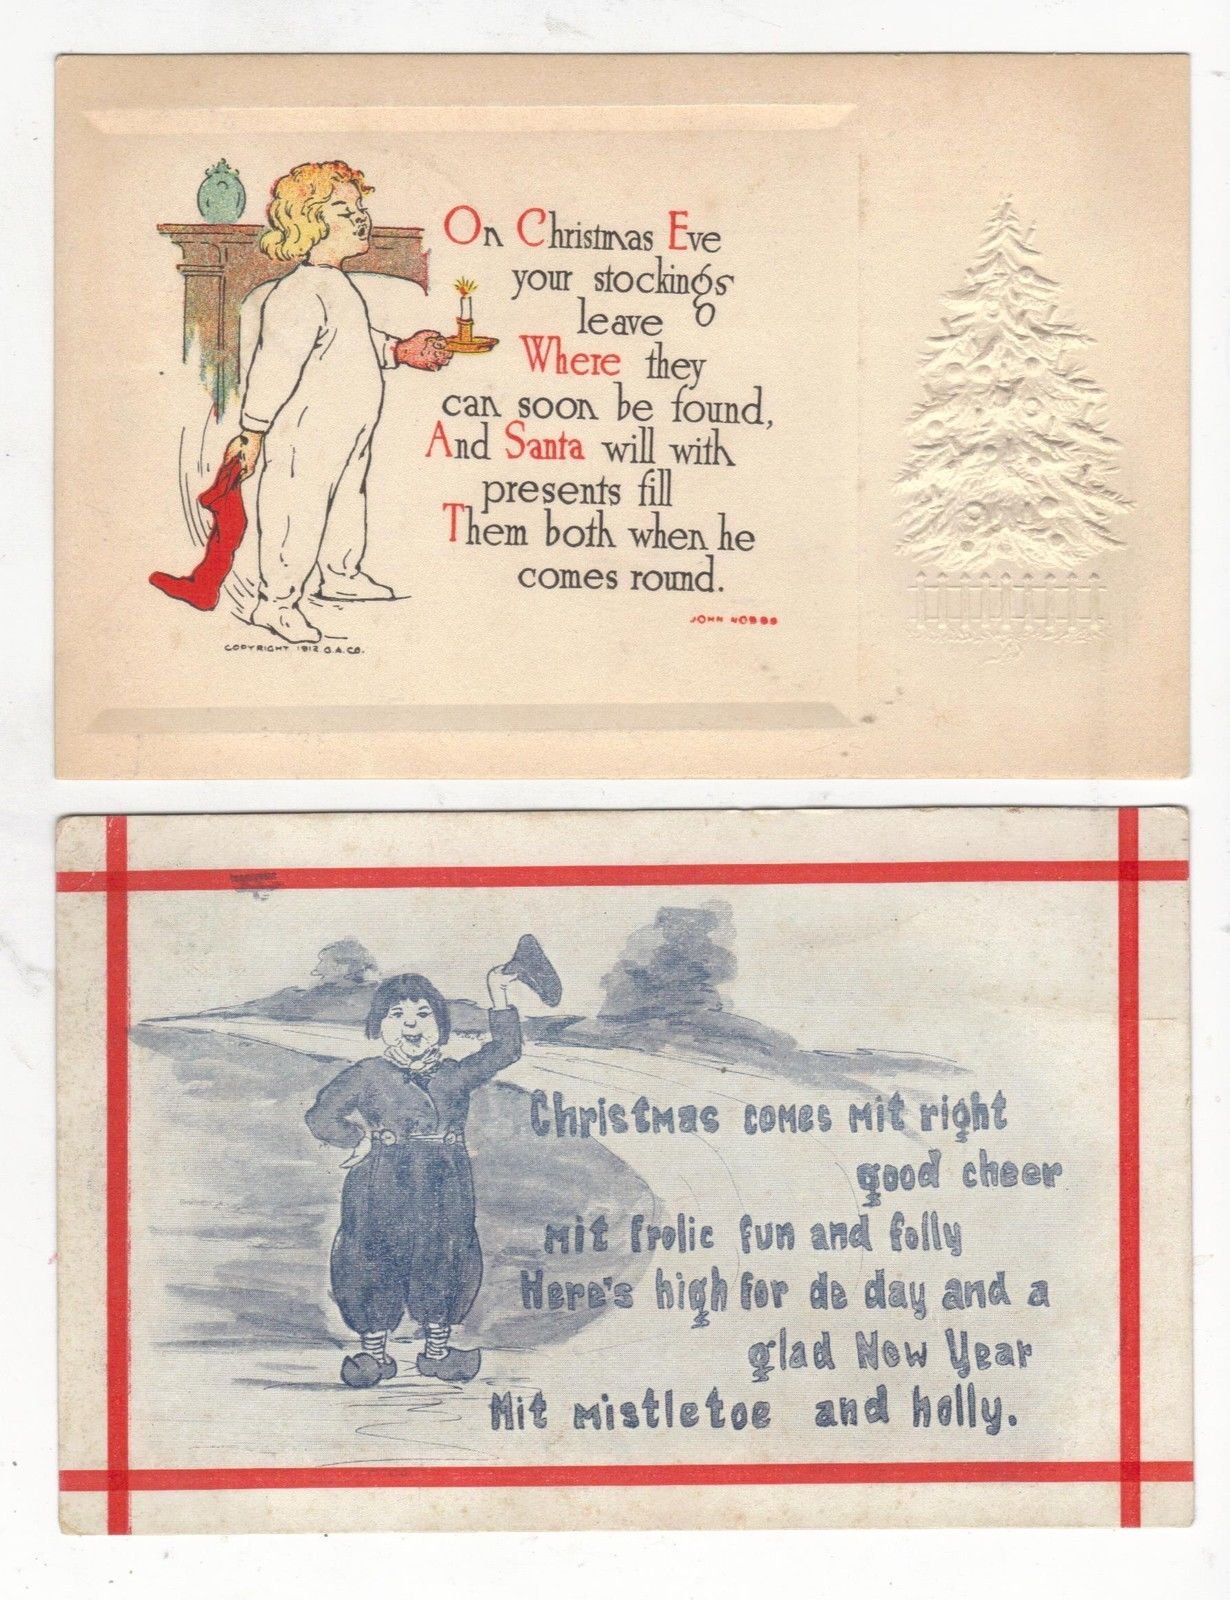 On Christmas Eve
your stockings
leave
Where they
can soon be found,
And Santa will with
presents fill
Them both when he
comes round.
JOHN HOBBS
COPYRIGHT 1912 G.A.CO.
Christmas comes mit right
good cheer
mit frolic fun and folly
Here's high for de day and a
glad New Year
Mit mistletoe and holly.